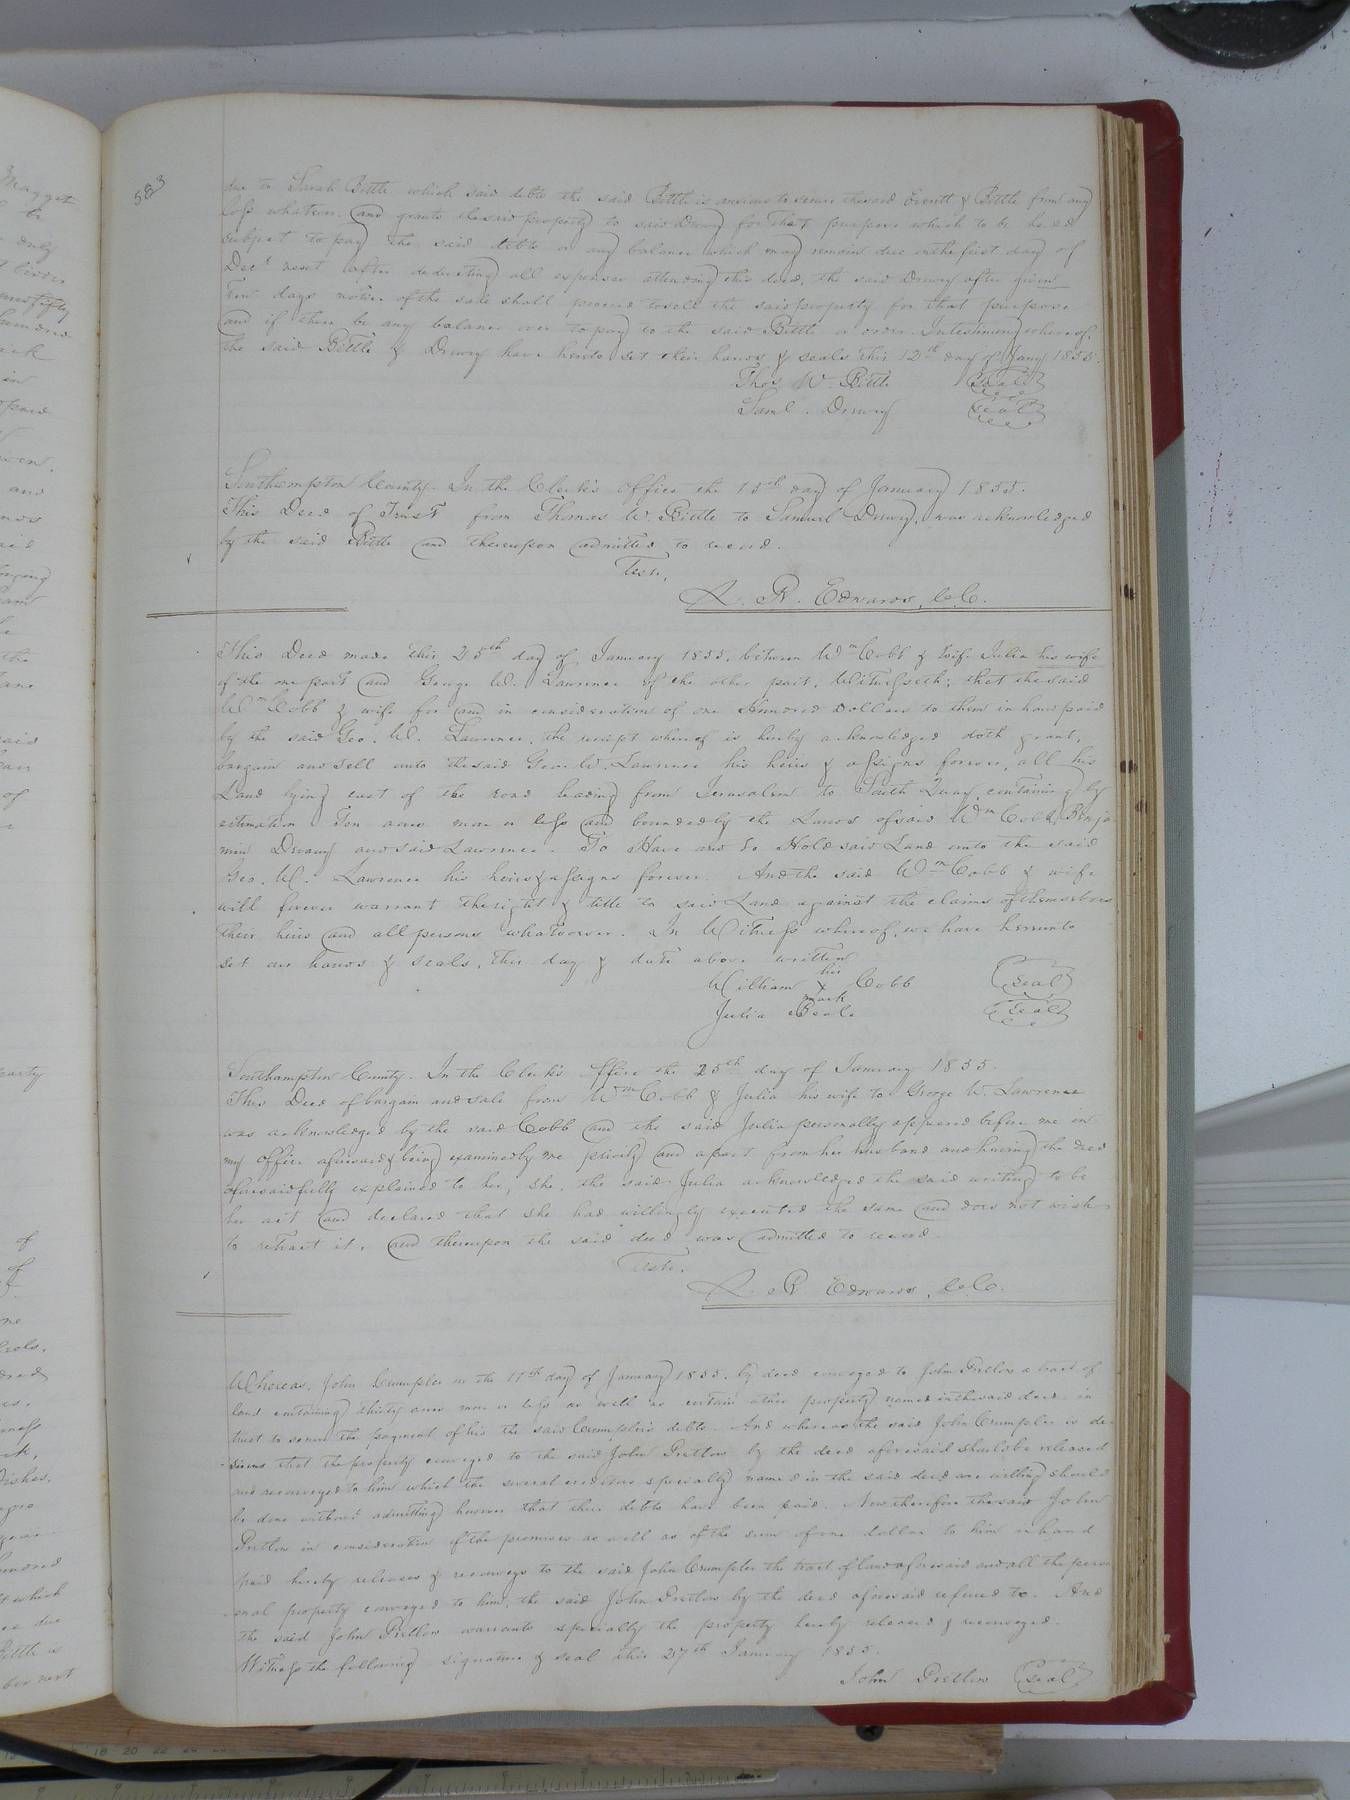 583
due to Sarah Bittle which said debts the said Bittle is anxious to secure the said Everitt & Bittle from any
loss whatever. and grants the said property to said Drury for that purpose which to be held
subject to pay the said debts or any balance which may remain due on the first day of
Decr next after deducting all expenses attending this deed, the said Drury after given
Ten days notice of the sale shall proceed to sell the said property for that purpose
and if there be any balance over to pay to the said Bittle or order. In testimony whereof,
the said Bittle & Drury have hereto set their hands & seals this 12th day of Jany 1855.
Thos W. Bittle (Seal)
Saml. Drury (Seal)
Southampton County. In the Clerk's Office the 15th day of January 1855.
This Deed of Trust from Thomas W. Bittle to Samuel Drury, was acknowledged
by the said Bittle and thereupon admitted to record.
Teste,
L. R. Edwards, C.C.
This Deed made this 25th day of January 1855, between Wm Cobb & wife Julia his wife
of the one part and George W. Lawrence of the other part, Witnesseth; that the said
Wm Cobb & wife for and in consideration of one Hundred Dollars to them in hand paid
by the said Geo. W. Lawrence, the receipt whereof is hereby acknowledged doth grant,
bargain and sell unto the said Geo. W. Lawrence his heirs & assigns forever, all his
Land lying east of the road leading from Jerusalem to South Quay, containing by
estimation Ten acres more or less and bounded by the Lands of said Wm Cobb, Benja
min Drewry and said Lawrence. To Have and to Hold said Land unto the said
Geo. W. Lawrence his heirs & assigns forever. And the said Wm Cobb & wife
will forever warrant the right & title to said Land against the claims of themselves
their heirs and all persons whatsoever. In Witness whereof, we have hereunto
set our hands & seals, this day & date above written
William his x mark Cobb (Seal)
Julia (Seal)
Southampton County. In the Clerk's Office the 25th day of January 1855.
This Deed of bargain and sale from Wm Cobb & Julia his wife to George W. Lawrence
was acknowledged by the said Cobb and the said Julia personally appeared before me in
my office aforesaid & being examined by me privily and apart from her husband and having the deed
aforesaid fully explained to her, she, the said Julia acknowledged the said writing to be
her act and declared that she had willingly executed the same and does not wish
to retract it, and thereupon the said deed was admitted to record.
Teste.
L. R. Edwards, C.C.
Whereas, John Crumpler on the 17th day of January 1855. by deed conveyed to John Pretlow a tract of
land containing thirty acres more or less as well as certain other property named in the said deed in
trust to secure the payment of his the said Crumpler's debts. And whereas the said John Crumpler is de-
sirous that the property conveyed to the said John Pretlow by the deed aforesaid should be released
and reconveyed to him which the several creditors specially named in the said deed are willing should
be done without admitting however that their debts have been paid. Now therefore the said John
Pretlow in consideration of the premises as well as of the sum of one dollar to him in hand
paid hereby releases & reconveys to the said John Crumpler the tract of land aforesaid and all the pers-
onal property conveyed to him, the said John Pretlow by the deed aforesaid refered to. And
the said John Pretlow warrants specially the property hereby released & reconveyed.
Witness the following signature & seal this 27th January 1855.
John Pretlow (Seal)